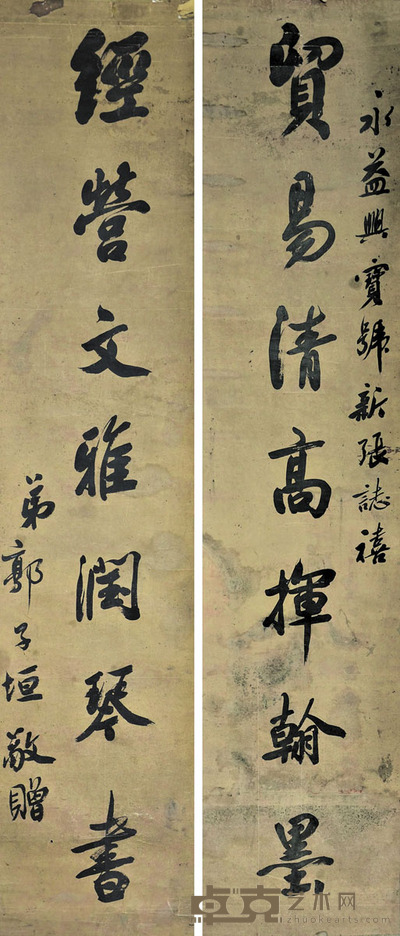 永益興寶號新張誌禧
貿易清高揮翰墨
經營文雅潤琴書
弟郭子垣敬贈
卓克艺术网
zhuokearts.com